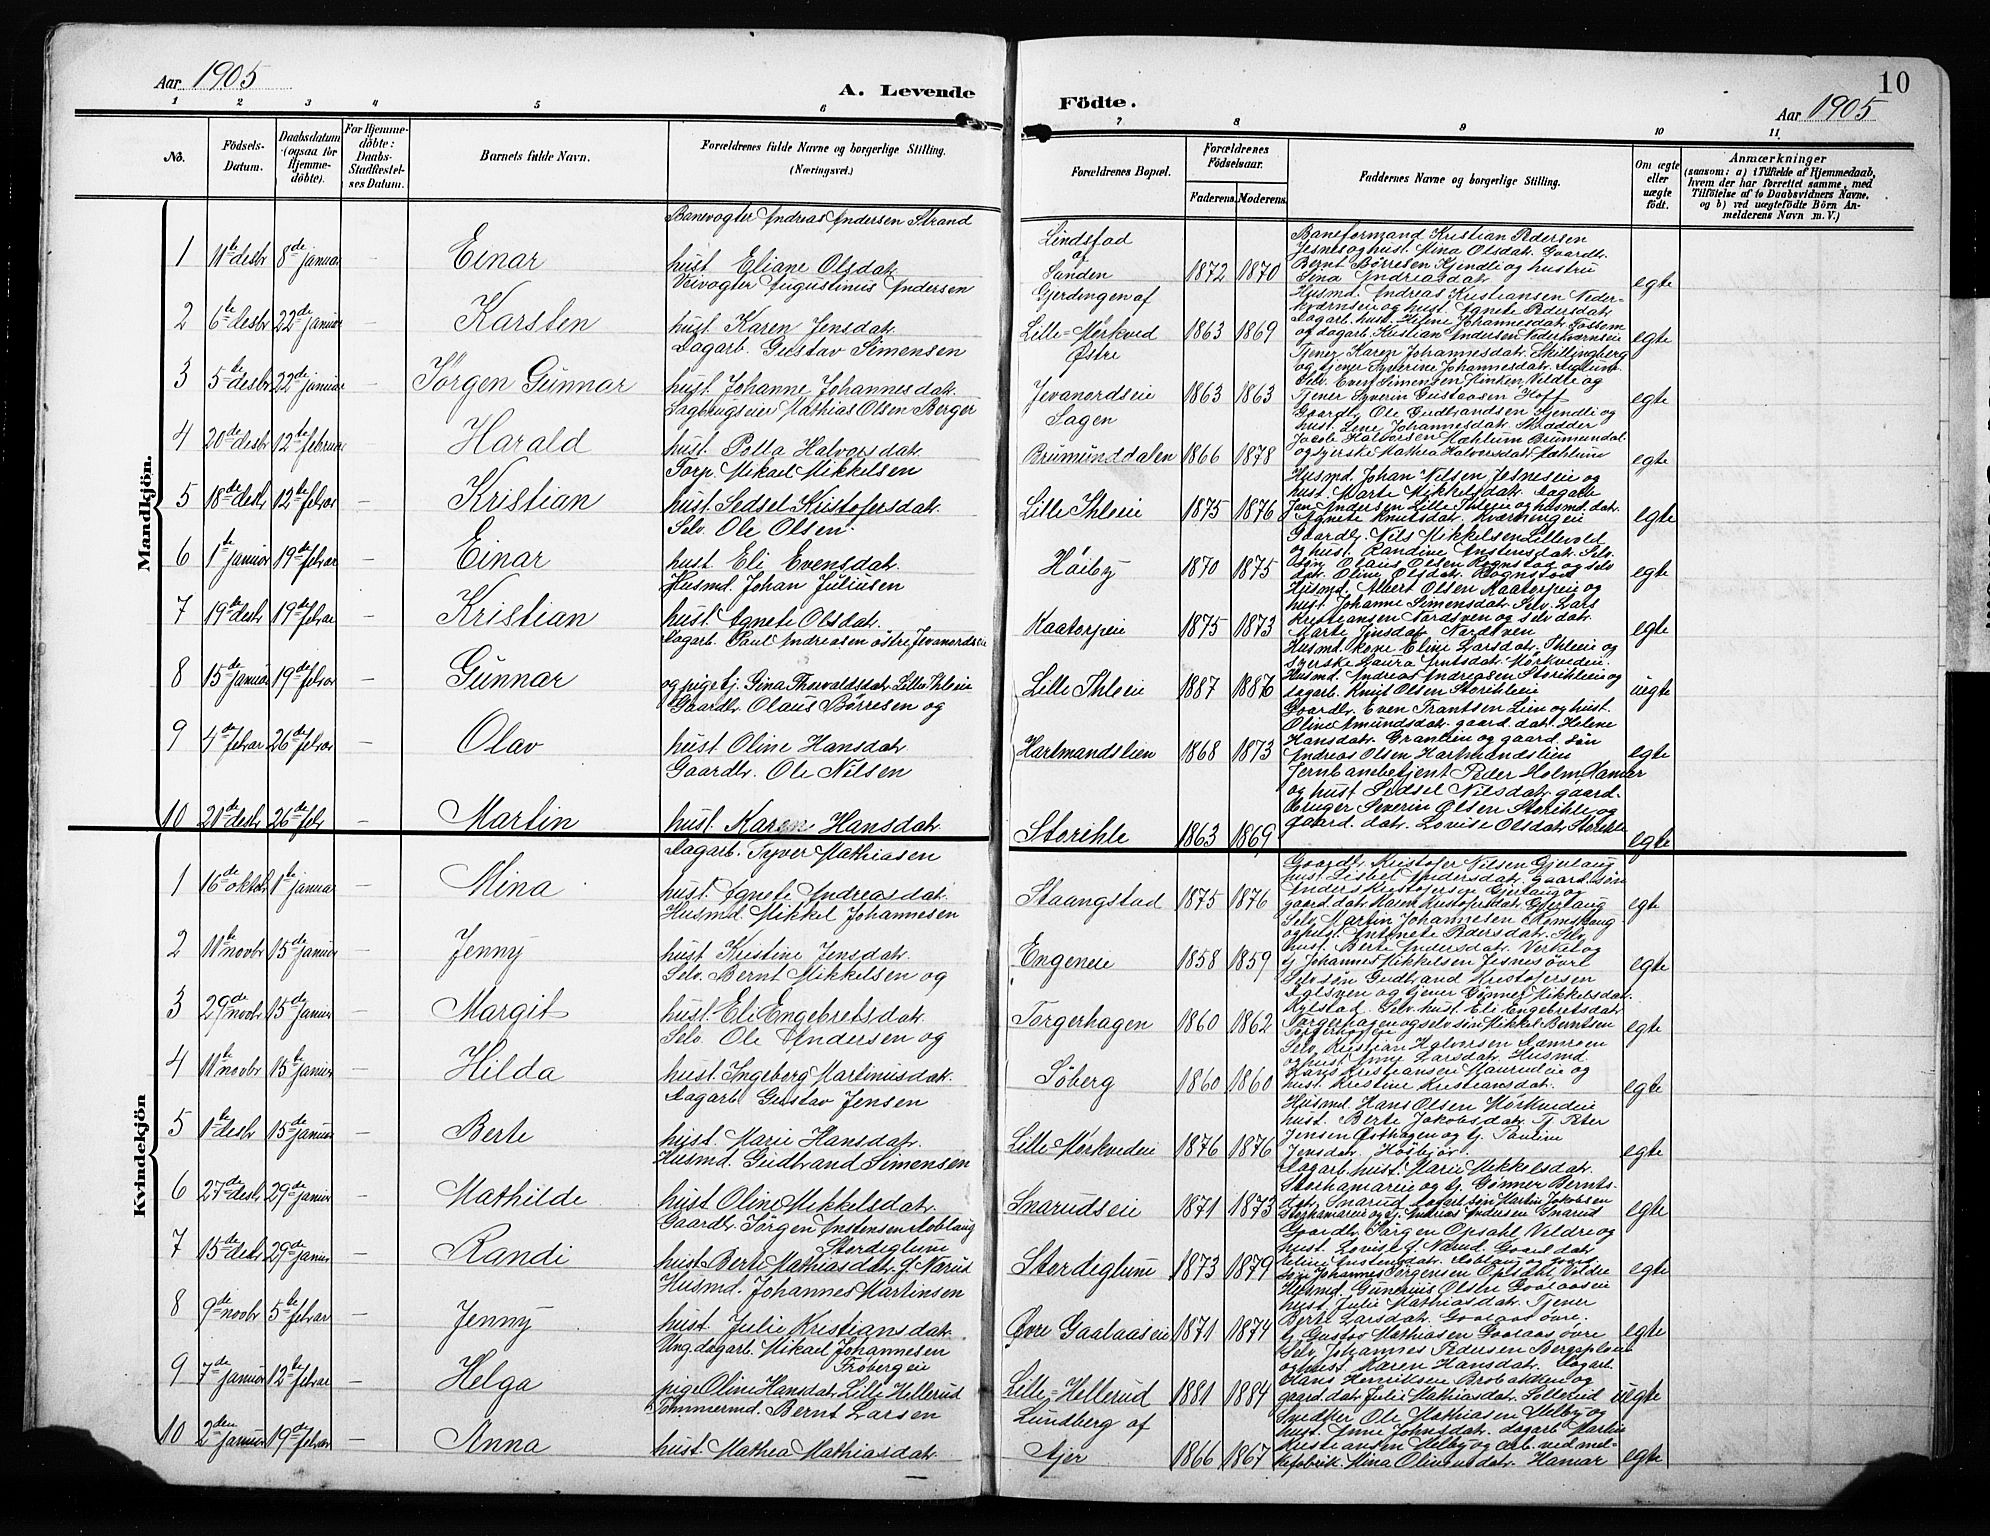 Aar 1905
A. Levende
Födte.
10
Aar 1905
1 2 3 4 5 6 7 8 9 10 11
No.
Födsels-
Datum.
Daabsdatum
(ogsaa for
Hjemme-
döbte).
For Hjemme-
döbte:
Daabs-
Stadfæstel-
ses Datum.
Barnets fulde Navn.
Forældrenes fulde Navne og borgerlige Stilling.
(Næringsvei.)
Forældrenes Bopæl.
Forældrenes
Födselsaar.
Faderens. Moderens.
Faddernes Navne og borgerlige Stilling.
Om ægte
eller
uægte
födt.
Anmærkninger
(saasom: a) i Tilfælde af Hjemmedaab,
hvem der har forrettet samme, med
Tilföielse af to Daabsvidners Navne.
og b) ved uægtefödte Börn An-
melderens Navn m. V.)
Mandkjön.
1 11te desbr 8de januar Einar
Banevogter Andreas Andersen Strand
hust. Eliane Olsdatr.
Lindstad
af
Sanden
1872 1870
Baneformand Kristian Pedersen
Jesnes og hust. Mina Olsdatr. Gaardbr.
Bernt Børresen Kjendli og hustru
Lina Andreasdatr.
egte
2 6te desbr 22de januar – Karsten
Veivogter Augustinus Andersen
hust. Karen Jensdatr.
Gjerdingen af
Lille-Mørkved
Østre
1863 1869
Husmd. Andreas Kristiansen Neder-
kværnseie og hust. Agnete Pedersdatr.
Dagarb. hust. Helene Johannesdatr.
og dagarb. Kristian Andersen Nederkværnseie
egte
3 5te desbr 22de januar – Jørgen Gunnar
Dagarb. Gustav Simensen
hust. Johanne Johannesdatr.
Jevanordseie
1863 1863
Tjener Karen Johannesdatr. Skillingberg
og tjener Syverine Johannesdatr.
Selv. Even Simensen Minken, Veldre og
Tjener Syverin Gustavsen Hoff
egte
4 20de desbr 12te februar – Harald
Sagbrugseier Mathias Olsen Berger
hust. Polla Halvorsdatr.
Sagen
Brumunddalen
1866 1878
Gaardbr. Ole Gudbrandsen Kjendli og
hust. Lene Johannesdatr. Skrædder
Jacob Halvorsen Mæhlum Brumundal
og syerske Mathea Halvorsdatr. Mæhlum
egte
5 18de desbr 12te febrar – Kristian
Torp. Mikael Mikkelsen
hust. Sedsel Kristofersdatr.
Lille Ihleeie
1875 1876
Husmd. Johan Nilsen Jesneseie og
hust. Marte Mikkelsdatr. Dagarb.
Jan Andersen Lille Ihleeie og husmd. datr.
Agnete Knutsdatr. Kværnengeie
egte
6 1te januar 19de febrar – Einar
Selv. Ole Olsen
hust. Eli Evensdatr.
Høiby
1870 1875
Gaardbr. Nils Mikkelsen Lillevold
og hust. Randine Anstensdatr. Selv.
søn Olaus Olsen Rognstad og selv.
datr. Oline Olsdatr. Rognstad
egte
7 19de desbr 19de febrar – Kristian
Husmd. Johan Juliusen
hust. Agnete Olsdatr.
Kaatorpeie
1875 1873
Husmd. Albert Olsen Kaatorpeie og
hust. Johanne Simensdatr. Selv. Lars
Kristiansen Nordsven og selv. datr.
Marte Jensdatr. Nordsven
egte
8 15de januar 19de febrar – Gunnar
Dagarb. Paul Andreasen østre Jevanordseie
og pige tj. Gina Thorvaldsdatr. Lille Ihleeie
Lille Ihleeie
1887 1886
Husmd. kone Eline Larsdatr. Ihleeie og
syerske Laura Arntsdatr. Mørkvedeie.
Husmd. Andreas Andreasen Storihleeie og
dagarb. Knut Olsen Storihleeie
uegte
9 4de febrar 26de febrar – Olav
Gaardbr. Olaus Børresen og
hust. Oline Hansdatr.
Hartmandslien
1868 1873
Gaardbr. Even Frantsen Lien og hust.
Oline Amundsdatr. gaard. datr. Helene
Hansdatr. Granlien og gaard. søn
Andreas Olsen Hartmandslien
egte
10 20de desbr 26de febr – Martin
Gaardbr. Ole Nilsen
hust. Karen Hansdatr.
Storihle
1863 1869
Jernbanebetjent Peder Holm Hamar
og hust. Sedsel Nilsdatr. gaard-
bruger Severin Olsen Storihle og
gaard. datr. Lovise Olsdatr. Storihle
egte
Kvindekjön
1 16de oktobr 1te januar – Mina
Dagarb. Tyver Mathiasen
hust. Agnete Andreasdatr.
Staangstad
1875 1876
Gaardbr. Kristofer Nilsen Gjerlaug
hust. Lisbet Andersdatr. gaard. søn
Anders Kristofersen Gjerlaug og
gaard. datr. Karen Kristofersdatr. Gjerlaug
egte
2 11te novbr 15de januar – Jenny
Husmd. Mikkel Johannesen
hust. Kristine Jensdatr.
Engeneie
1858 1859
Selv. Martin Johannesen Romskaug
og hust. Antonete Pedersdatr. Selv.
hust. Berte Andersdatr. Verket og
tj. Johannes Mikkelsen Jesnes øvre
egte
3 29de novbr 15de januar – Margit
Selv. Bernt Mikkelsen og
hust. Eli Engebretsdatr.
Torgerhagen
1860 1862
Selv. søn Gudbrand Kristofersen
Dalsven og tjener Gønner Mikkelsdatr.
Rylstad. Selv. hust. Eli Engebretsdatr.
Torgerhagen og selv. søn Mikkel Berntsen
Torgerhagen
egte
4 11te novbr 15de januar – Hilda
Selv. Ole Andersen og
hust. Ingeborg Martinusdatr.
Søberg
1860 1860
Selv. Kristian Halvorsen
og hust. Anne Larsdatr. Husmd.
Hans Kristiansen Maurudeie og
hust. Kristine Kristiansdatr.
egte
5 1te desbr 15de januar Berte
Dagarb. Gustav Jensen
hust. Marie Hansdatr.
Lille-Mørkvedeie
1876 1876
Husmd. Hans Olsen Mørkvedeie
hust. Berte Jakobsdatr. Tj. Peter
Jensen Østhagen og tj. Pauline
Jensdatr. Høibjør.
egte
6 27de desbr 29de januar – Mathilde
Husmd. Gudbrand Simensen
hust. Oline Mikkelsdatr.
Snarudseie
1871 1873
Dagarb. hust. Marie Mikkelsdatr.
Storhamareie og tj. Gønner Bernts-
datr. Snarud. Dagarb. søn Martin Jakobsen
Storhamareie og tj. Andreas Andersen Snarud
egte
7 15de desbr 29de januar – Randi
Gaardbr. Jørgen Anstensen Aoblaug
Stordiglum
hust. Berte Mathiasdatr. f. Nærud
Stordiglum
1873 1879
Gaardbr. Jørgen Opsahl, Veldre og
hust. Lovise f. Nærud. Gaard. datr.
Eline Anstensdatr. Aoblaug og gaard.
søn Johannes Jørgensen Opsahl, Veldre
egte
8 9de novbr 5te febrar – Jenny
Husmd. Johannes Martinsen
hust. Julie Kristiansdatr.
Øvre Gaalaaseie
1871 1874
Husmd. Gunerius Olsen Gaalaaseie
hust. Julie Mathiasdatr. Tjener
Berte Larsdatr. Gaalaas øvre.
tj. Gustav Mathiasen Gaalaas øvre
egte
9 7de januar 12te febrar – Helga
Ung. dagarb. Mikael Johannesen
Frøbergeie
pige Oline Hansdatr. Lille Hellerud
Lille-Hellerud
1881 1884
Selv. Johannes Pedersen Bergsploen
og hust. Karen Hansdatr. Dagarb.
Hans Henriksen Brobakken og
gaard. datr. Julie Mathiasdatr. Sollerud
uegte
10 2den januar 19de febrar – Anna
Tømmermd. Bernt Larsen
hust. Mathea Mathiasdatr.
Lundberg af
Ajer
1866 1867
Snedker Ole Mathiasen Melby og
hust. Anne Johnsdatr. dagarb. Martin
Kristiansen Melby og arb. ved mel-
kefabrik. Mina Olivensdatr. Hamar
egte